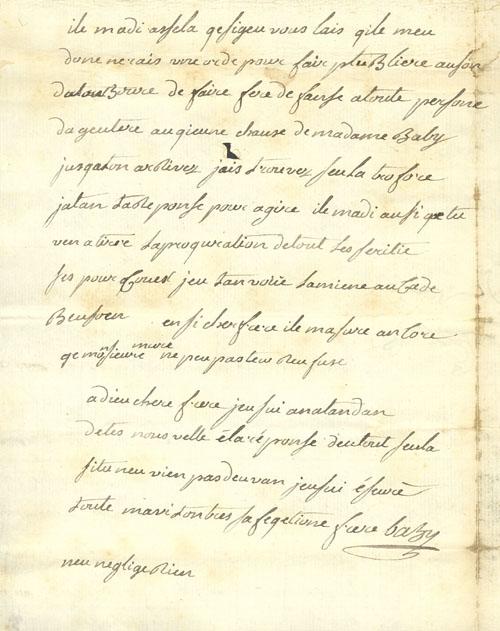 ile madi assela qesigeu vous lais qile meu
donnerais une orde pour fair publiere au son
de faire fere defanse atoute persone
dageutere auqieune chause de madame Baby
jusqaton arivez jais trouvez seula tro fore
jatan ta reponse pour agire ile madi ausi qe tu
ven a tirere laproquration detout tes
ses pour jeu tan voiie lamiene au
en si cher frere ile masure ancore
qe monsieure mure ne peu pas teu reufuse
adieu chere frere jeu sui anatandan
detes nouvelle é la réponse deu tout seula
si tu neu vien pas deuvan jeu sui
toute mavi ton tres safeqtione frere baby
neu neglige rien